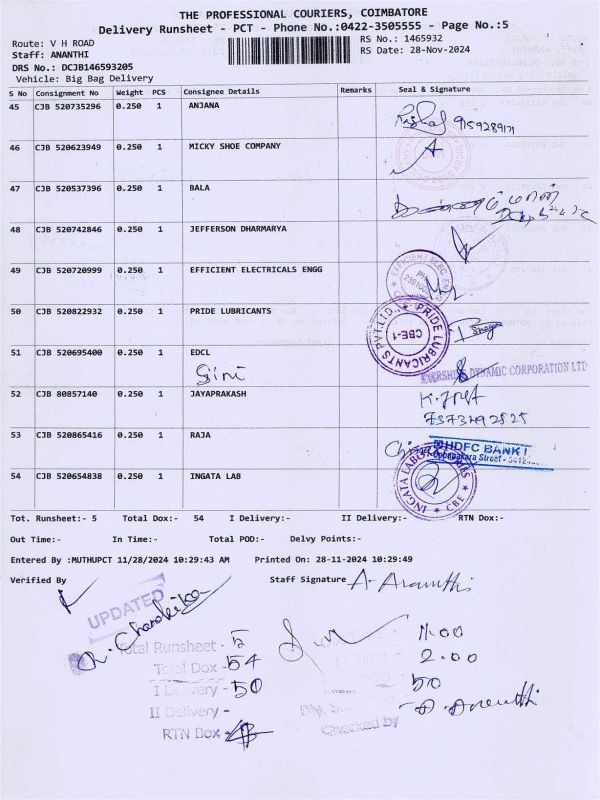 THE PROFESSIONAL COURIERS, COIMBATORE
Delivery Runsheet - PCT - Phone No.:0422-3505555 - Page No.:5
Route: V H ROAD
RS No.: 1465932
Staff: ANANTHI
RS Date: 28-Nov-2024
DRS No.: DCJB146593205
Vehicle: Big Bag Delivery
S No Consignment No Weight PCS Consignee Details Remarks Seal & Signature
45 CJB 520735296 0.250 1 ANJANA
9159289171
46 CJB 520623949 0.250 1 MICKY SHOE COMPANY
47 CJB 520537396 0.250 1 BALA
48 CJB 520742846 0.250 1 JEFFERSON DHARMARYA
49 CJB 520720999 0.250 1 EFFICIENT ELECTRICALS ENGG
50 CJB 520822932 0.250 1 PRIDE LUBRICANTS
PRIDE LUBRICANTS PVT.LTD.
CBE-1
51 CJB 520695400 0.250 1 EDCL
Giri
DYNAMIC CORPORATION LTD
52 CJB 80857140 0.250 1 JAYAPRAKASH
53 CJB 520865416 0.250 1 RAJA
HDFC BANK
54 CJB 520654838 0.250 1 INGATA LAB
INGATA LAB
CBE
Tot. Runsheet:- 5 Total Dox:- 54 I Delivery:- II Delivery:- RTN Dox:-
Out Time:- In Time:- Total POD:- Delvy Points:-
Entered By :MUTHUPCT 11/28/2024 10:29:43 AM Printed On: 28-11-2024 10:29:49
Verified By
Staff Signature A. Ananthi
UPDATED
Total Runsheet - 5
11.00
Total Dox - 54
2.00
I Delivery - 50
50
II Delivery -
A. Ananthi
Checked by
RTN Box -